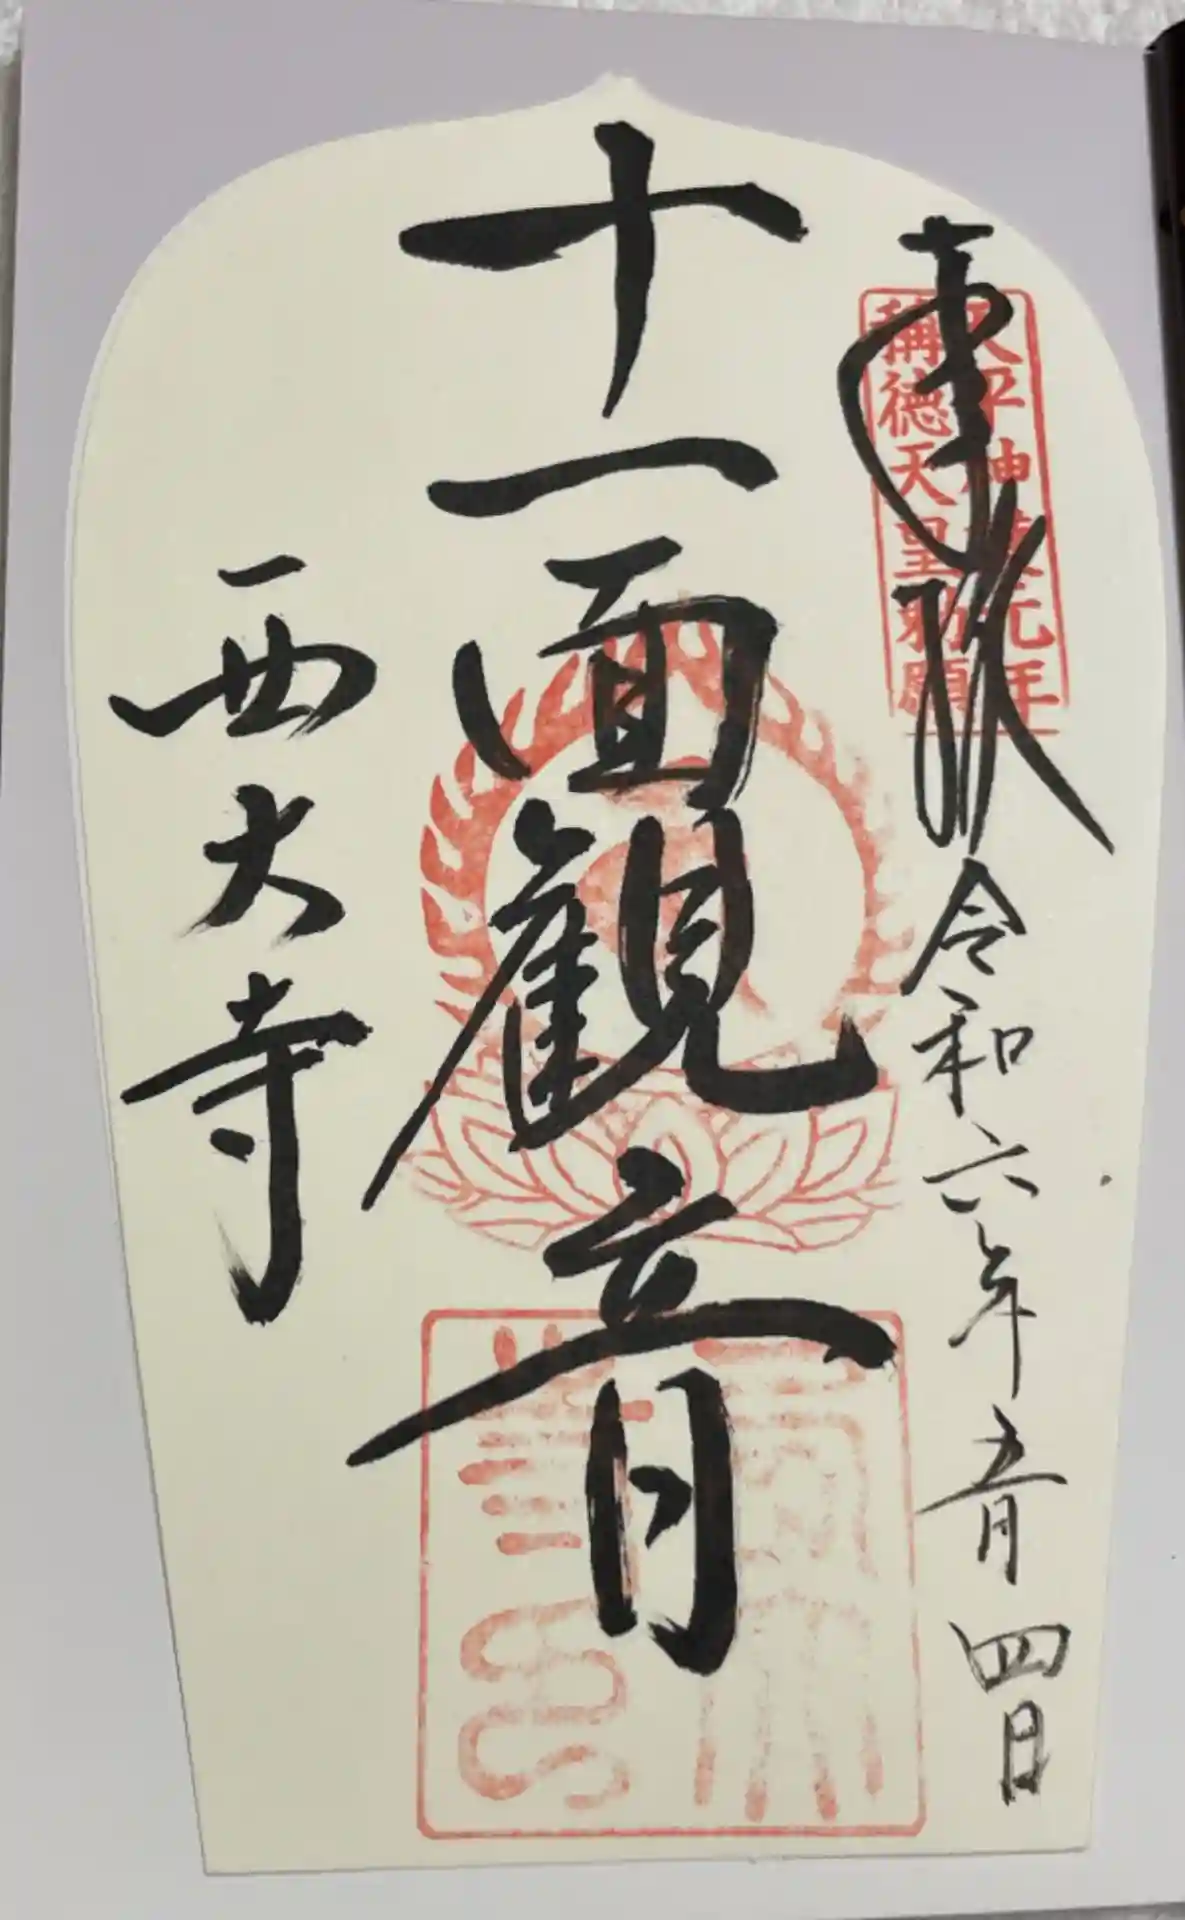 奉拝
天平神護元年
稱德天皇勅願
令和六年五月四日
十一面観音
西大寺